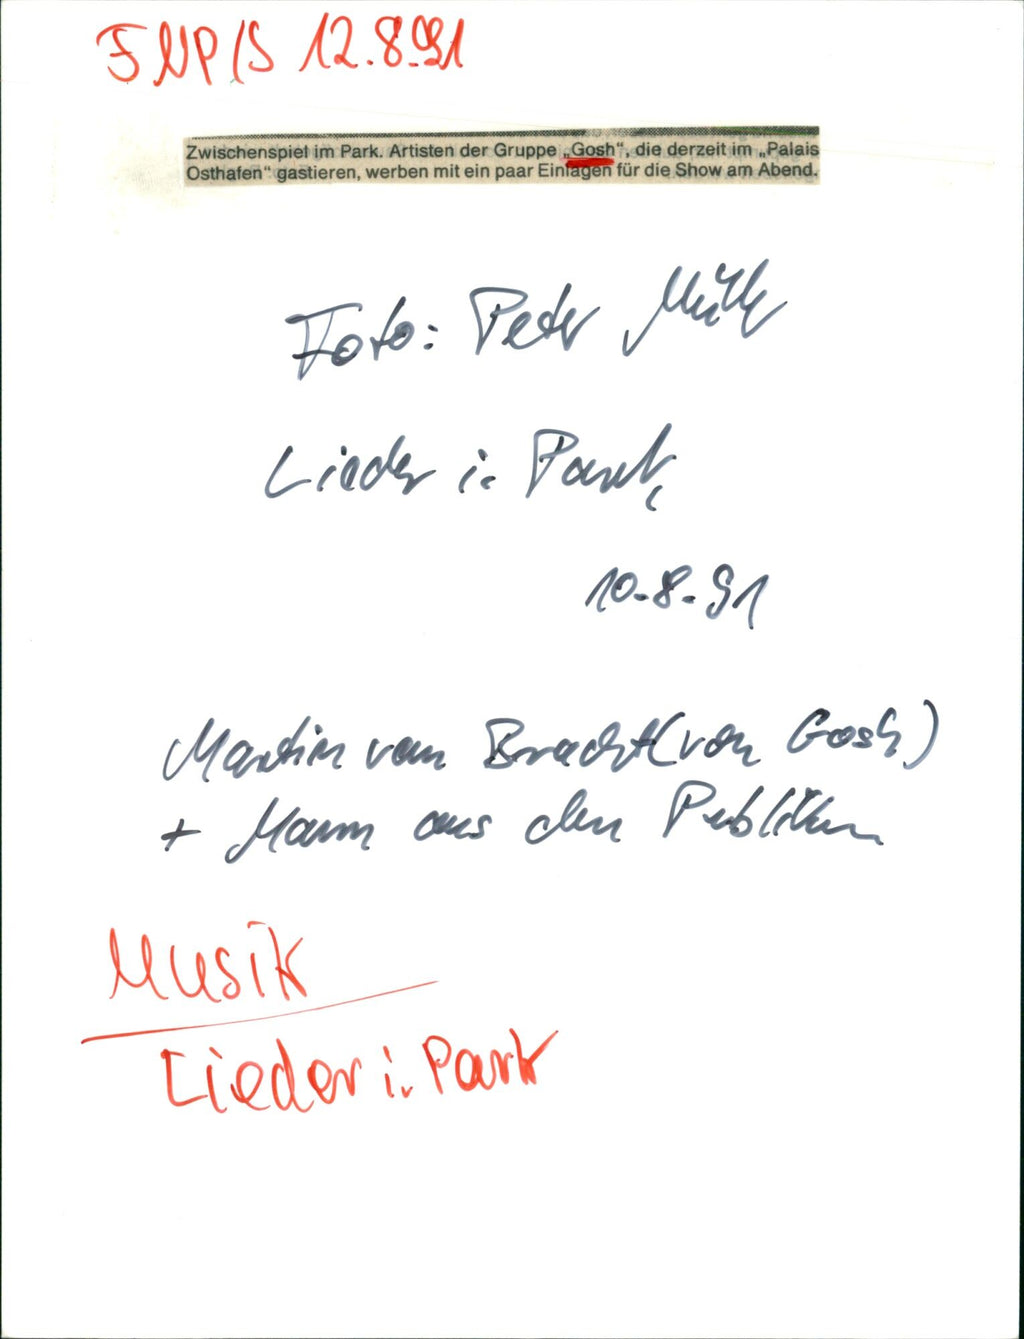 FNP/S 12.8.91
Zwischenspiel im Park. Artisten der Gruppe „Gosh“, die derzeit im „Palais
Osthafen“ gastieren, werben mit ein paar Einlagen für die Show am Abend.
Foto: Peter
Lieder i. Park,
10.8.91
Martin van Bracht (von Gosh)
+ Mann aus dem Publikum
Musik
Lieder i. Park